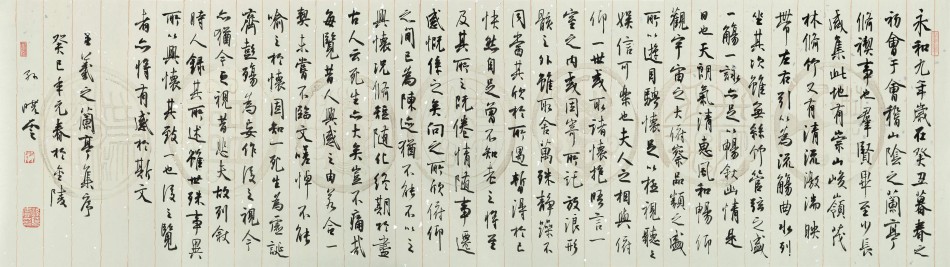 永和九年歲在癸丑暮春之
初會于會稽山陰之蘭亭
脩禊事也群賢畢至少長
咸集此地有崇山峻嶺茂
林脩竹又有清流激湍映
帶左右引以為流觴曲水列
坐其次雖無絲竹管弦之盛
一觴一詠亦足以暢敘幽情是
日也天朗氣清惠風和暢仰
觀宇宙之大俯察品類之盛
所以遊目騁懷足以極視聽之
娛信可樂也夫人之相與俯
仰一世或取諸懷抱晤言一
室之內或因寄所託放浪形
骸之外雖取舍萬殊靜躁不
同當其欣於所遇暫得於己
快然自足曾不知老之將至
及其所之既倦情隨事遷
感慨係之矣向之所欣俯仰
之間已為陳迹猶不能不以之
興懷況脩短隨化終期於盡
古人云死生亦大矣豈不痛哉
每覽昔人興感之由若合一
契未嘗不臨文嗟悼不能
喻之於懷固知一死生為虛誕
齊彭殤為妄作後之視今
亦猶今之視昔悲夫故列敘
時人錄其所述雖世殊事異
所以興懷其致一也後之覽
者亦將有感於斯文
王羲之蘭亭集序
癸巳年元春於金陵
孙曉雲